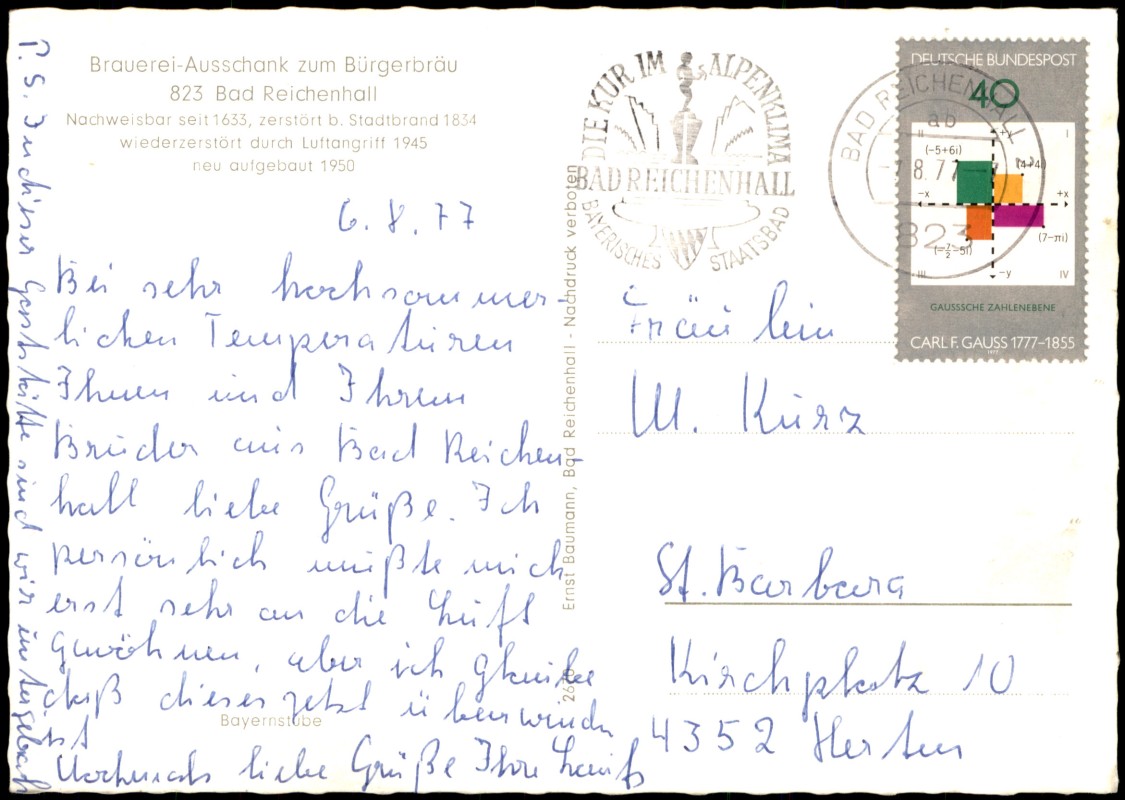 Brauerei-Ausschank zum Bürgerbräu
823 Bad Reichenhall
Nachweisbar seit 1633, zerstört b. Stadtbrand 1834
wiederzerstört durch Luftangriff 1945
neu aufgebaut 1950
6.8.77
Bei sehr hochsommer-
lichen Temperaturen
Ihnen und Ihrem
Bruder aus Bad Reichen-
hall liebe Grüße. Ich
persönlich mußte mich
erst sehr an die Luft
gewöhnen, aber ich glaube
daß dieses jetzt überwunden
ist
Nochmals liebe Grüße Ihre
P.S. In dieser Gaststätte sind wir untergebracht
Bayernstube
Ernst Baumann, Bad Reichenhall - Nachdruck verboten
DIE KUR IM ALPENKLIMA
BAD REICHENHALL
BAYERISCHES STAATSBAD
BAD REICHENHALL
ab
8.77
823
DEUTSCHE BUNDESPOST
40
II
+y
I
(-5+6i)
(4+4i)
-x
+x
(-7/2-5i)
(7-πi)
III
-y
IV
GAUSSSCHE ZAHLENEBENE
CARL F. GAUSS 1777-1855
1977
Fräulein
M. Kurz
St. Barbara
Kirchplatz 10
4352 Herten